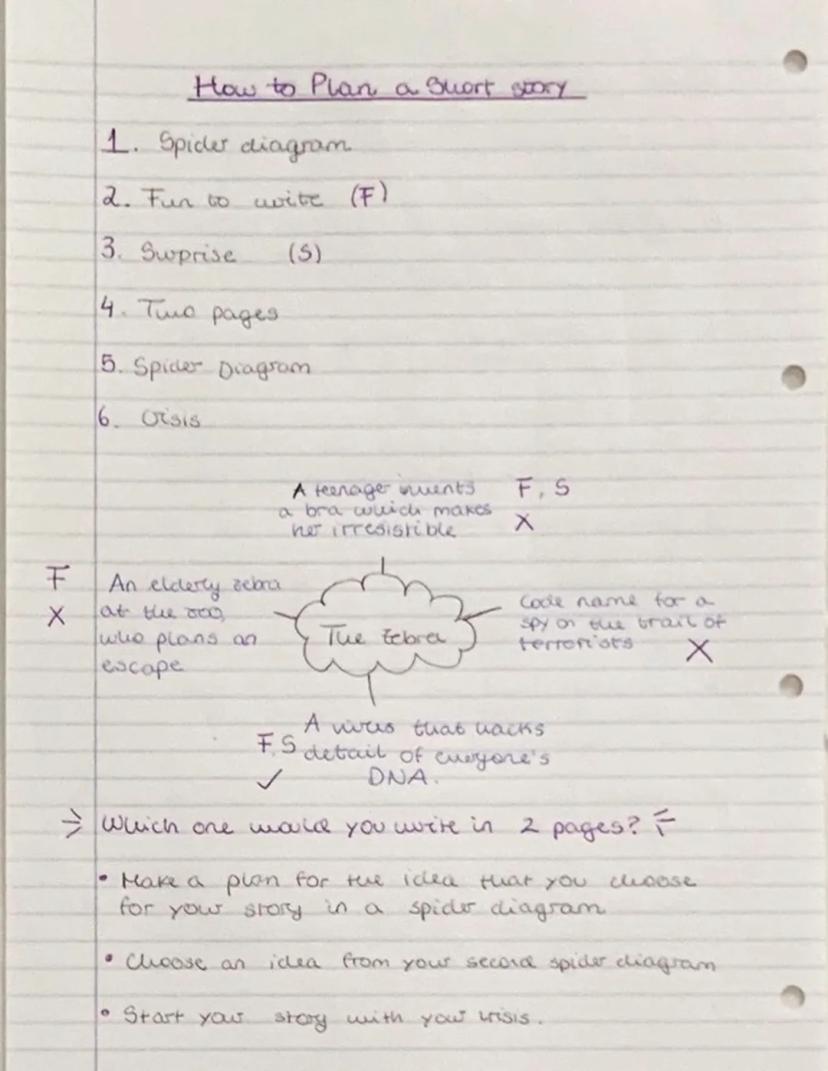 How to Plan a Short story
1. Spider diagram
2. Fun to write (F)
3. Surprise (S)
4. Two pages
5. Spider Diagram
6. Crisis
A teenager invents F, S
a bra which makes X
her irresistible
F An elderly zebra
X at the zoo,
who plans an
escape
The Zebra
Code name for a
spy on the trail of
terrorists X
A virus that hacks
F, S detail of everyone's
✓ DNA.
Which one would you write in 2 pages?
• Make a plan for the idea that you choose
for your story in a spider diagram
• Choose an idea from your second spider diagram
• Start your story with your crisis.